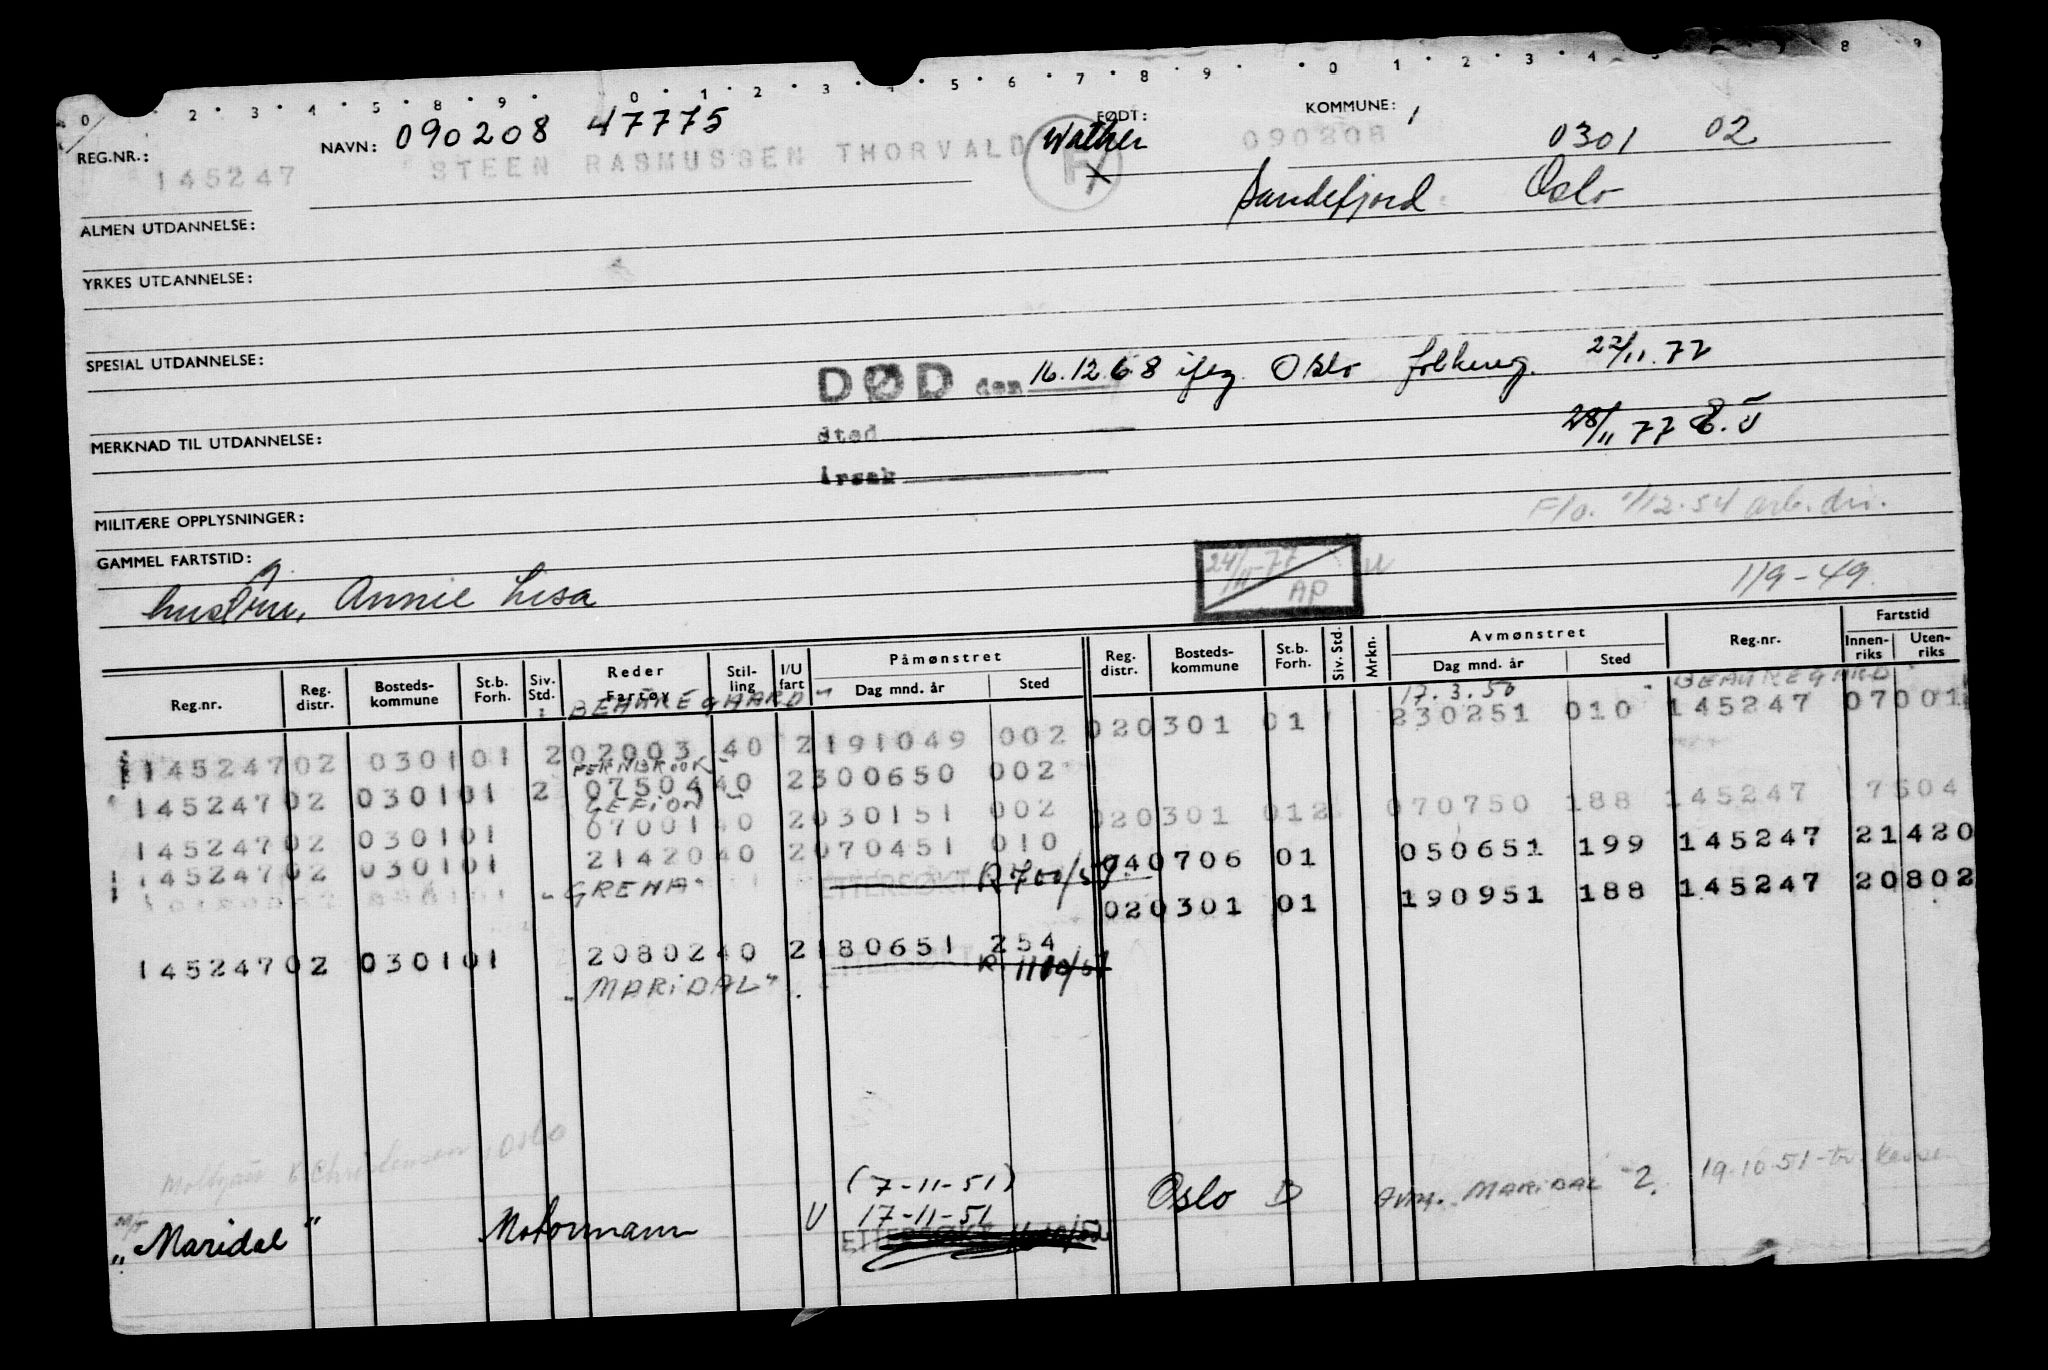 0 · · 2 · 3 · 4 · 5 · 8 · 9 · 0 · 1 · 2 · 3 · 4 · 5 · 6 · 7 · 8 · 9 · · 0 1 · 2 · 3 · 4 8 9
REG.NR.: NAVN: 090208 47775 FØDT: KOMMUNE: 1
145247 STEEN RASMUSSEN THORVALD Walther 090208 0301 02
H
Sandefjord Oslo
ALMEN UTDANNELSE:
YRKES UTDANNELSE:
SPESIAL UTDANNELSE:
DØD den 16.12.68 ifлg. Oslo folkereg. 22/11.77
sted
28/11 77
årsak
MERKNAD TIL UTDANNELSE:
MILITÆRE OPPLYSNINGER:
F/o. 1/12.54 arb.dir.
GAMMEL FARTSTID:
24/11-77 AP
hustru, Annie Lisa
1/9-49
Reg.nr. Reg. distr. Bosteds- kommune St.b. Forh. Siv. Std. Reder Fartøy Stil- ling I/U fart Påmønstret Dag mnd. år Sted Reg. distr. Bosteds- kommune St.b. Forh. Siv. Std. Mrkn. Avmønstret Dag mnd. år Sted Reg.nr. Fartstid Innen- riks Uten- riks
"BEAUREGAARD" 17.3.50 "BEAUREGARD"
145247 02 0301 01 2 02003 40 2 191049 002 02 0301 01 230251 010 145247 07001
"FERNBROOK"
145247 02 0301 01 2 07504 40 2 300650 002
"GEFION"
145247 02 0301 01 07001 40 2 030151 002 02 0301 012 070750 188 145247 7504
145247 02 0301 01 21420 40 2 070451 010 04 0706 01 050651 199 145247 21420
"GRENA" ETTERSØKT R 700/51
02 0301 01 190951 188 145247 20802
145247 02 0301 01 20802 40 2 180651 254
R 1100/51
"MARIDAL"
Christensen, Oslo
(7-11-51) Oslo D Avm. MARIDAL 2. 19.10.51
M/T "Maridal" Motormann U 17-11-51
ETTERSØKT